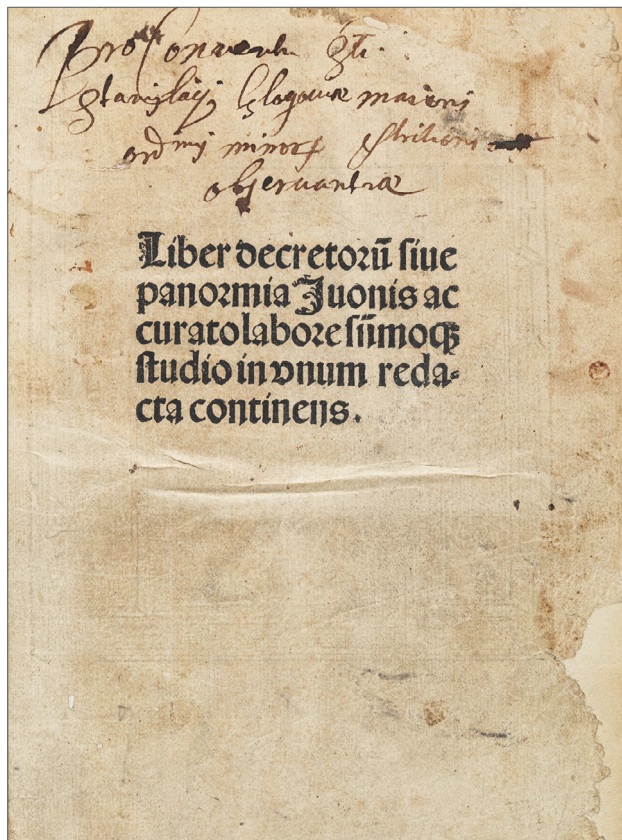 Pro Conventu Sti.
Stanislaij Glogoviæ maioris
ordinis minorũ strictioris
obseruantiæ
Liber decretorũ ſiue
panormia Juonis ac
curato labore ſũmoqꝫ
ſtudio in vnum reda⸗
cta continens.